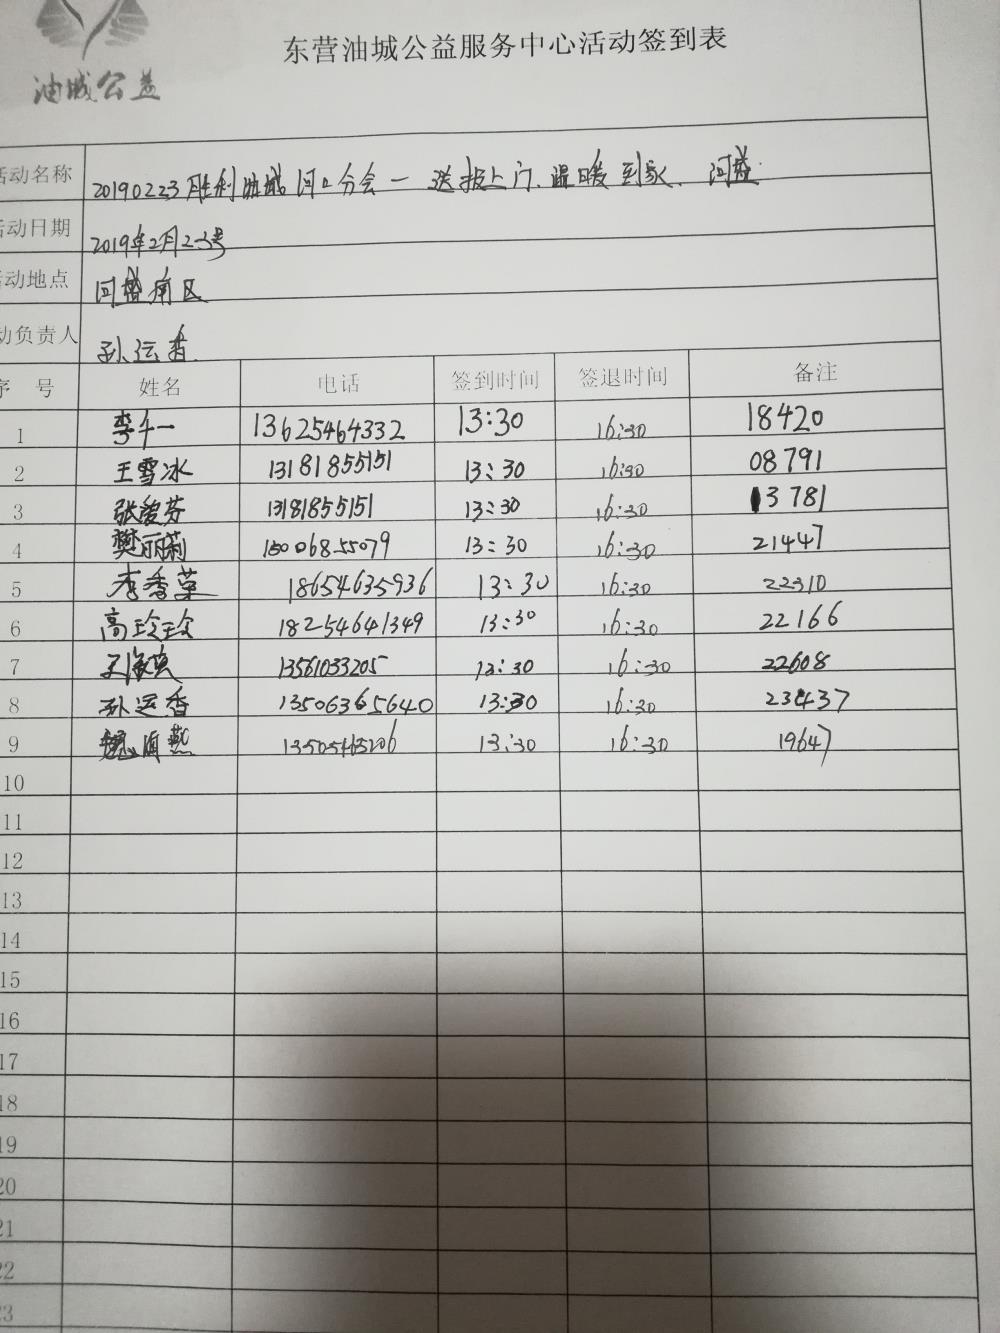 东营油城公益服务中心活动签到表
油城公益
活动名称 20190223胜利油城河口分会一送报上门、温暖到家、河盛
活动日期 2019年2月23号
活动地点 河盛南区
动负责人 孙运香
序 号 姓名 电话 签到时间 签退时间 备注
1 李千一 13625464332 13:30 16:30 18420
2 王雪冰 13181855151 13:30 16:30 08791
3 张爱芬 13181855151 13:30 16:30 13781
4 樊丽莉 15006855079 13:30 16:30 21447
5 李香菊 18654635936 13:30 16:30 22310
6 高玲玲 18254641349 13:30 16:30 22166
7 13561033205 13:30 16:30 22608
8 孙运香 13506365640 13:30 16:30 23437
9 魏海燕 13505463206 13:30 16:30 19647
10
11
12
13
14
15
16
17
18
19
20
21
22
23